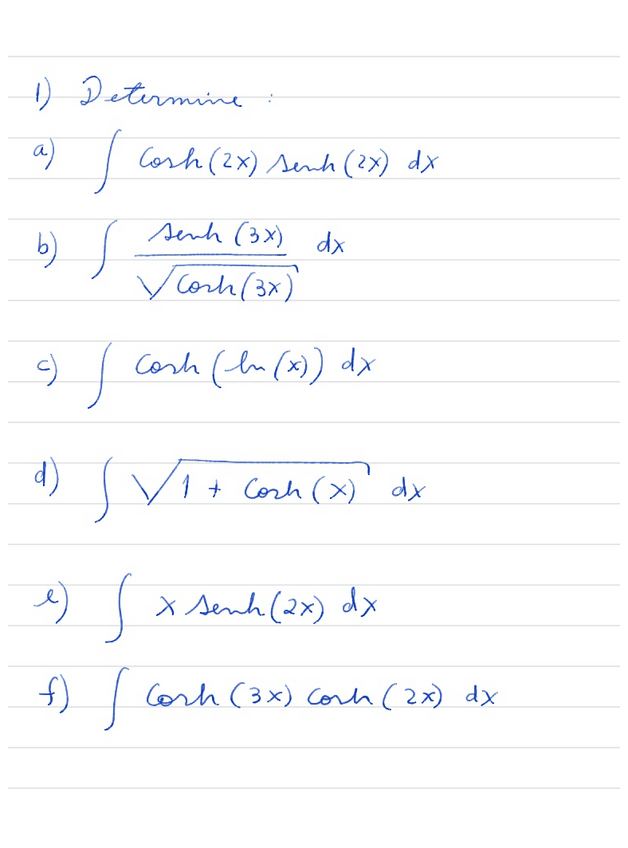 1) Determine :
a) ∫ cosh(2x) senh(2x) dx
b) ∫ senh(3x)/√cosh(3x) dx
c) ∫ cosh(ln(x)) dx
d) ∫ √(1 + cosh(x)) dx
e) ∫ x senh(2x) dx
f) ∫ cosh(3x) cosh(2x) dx